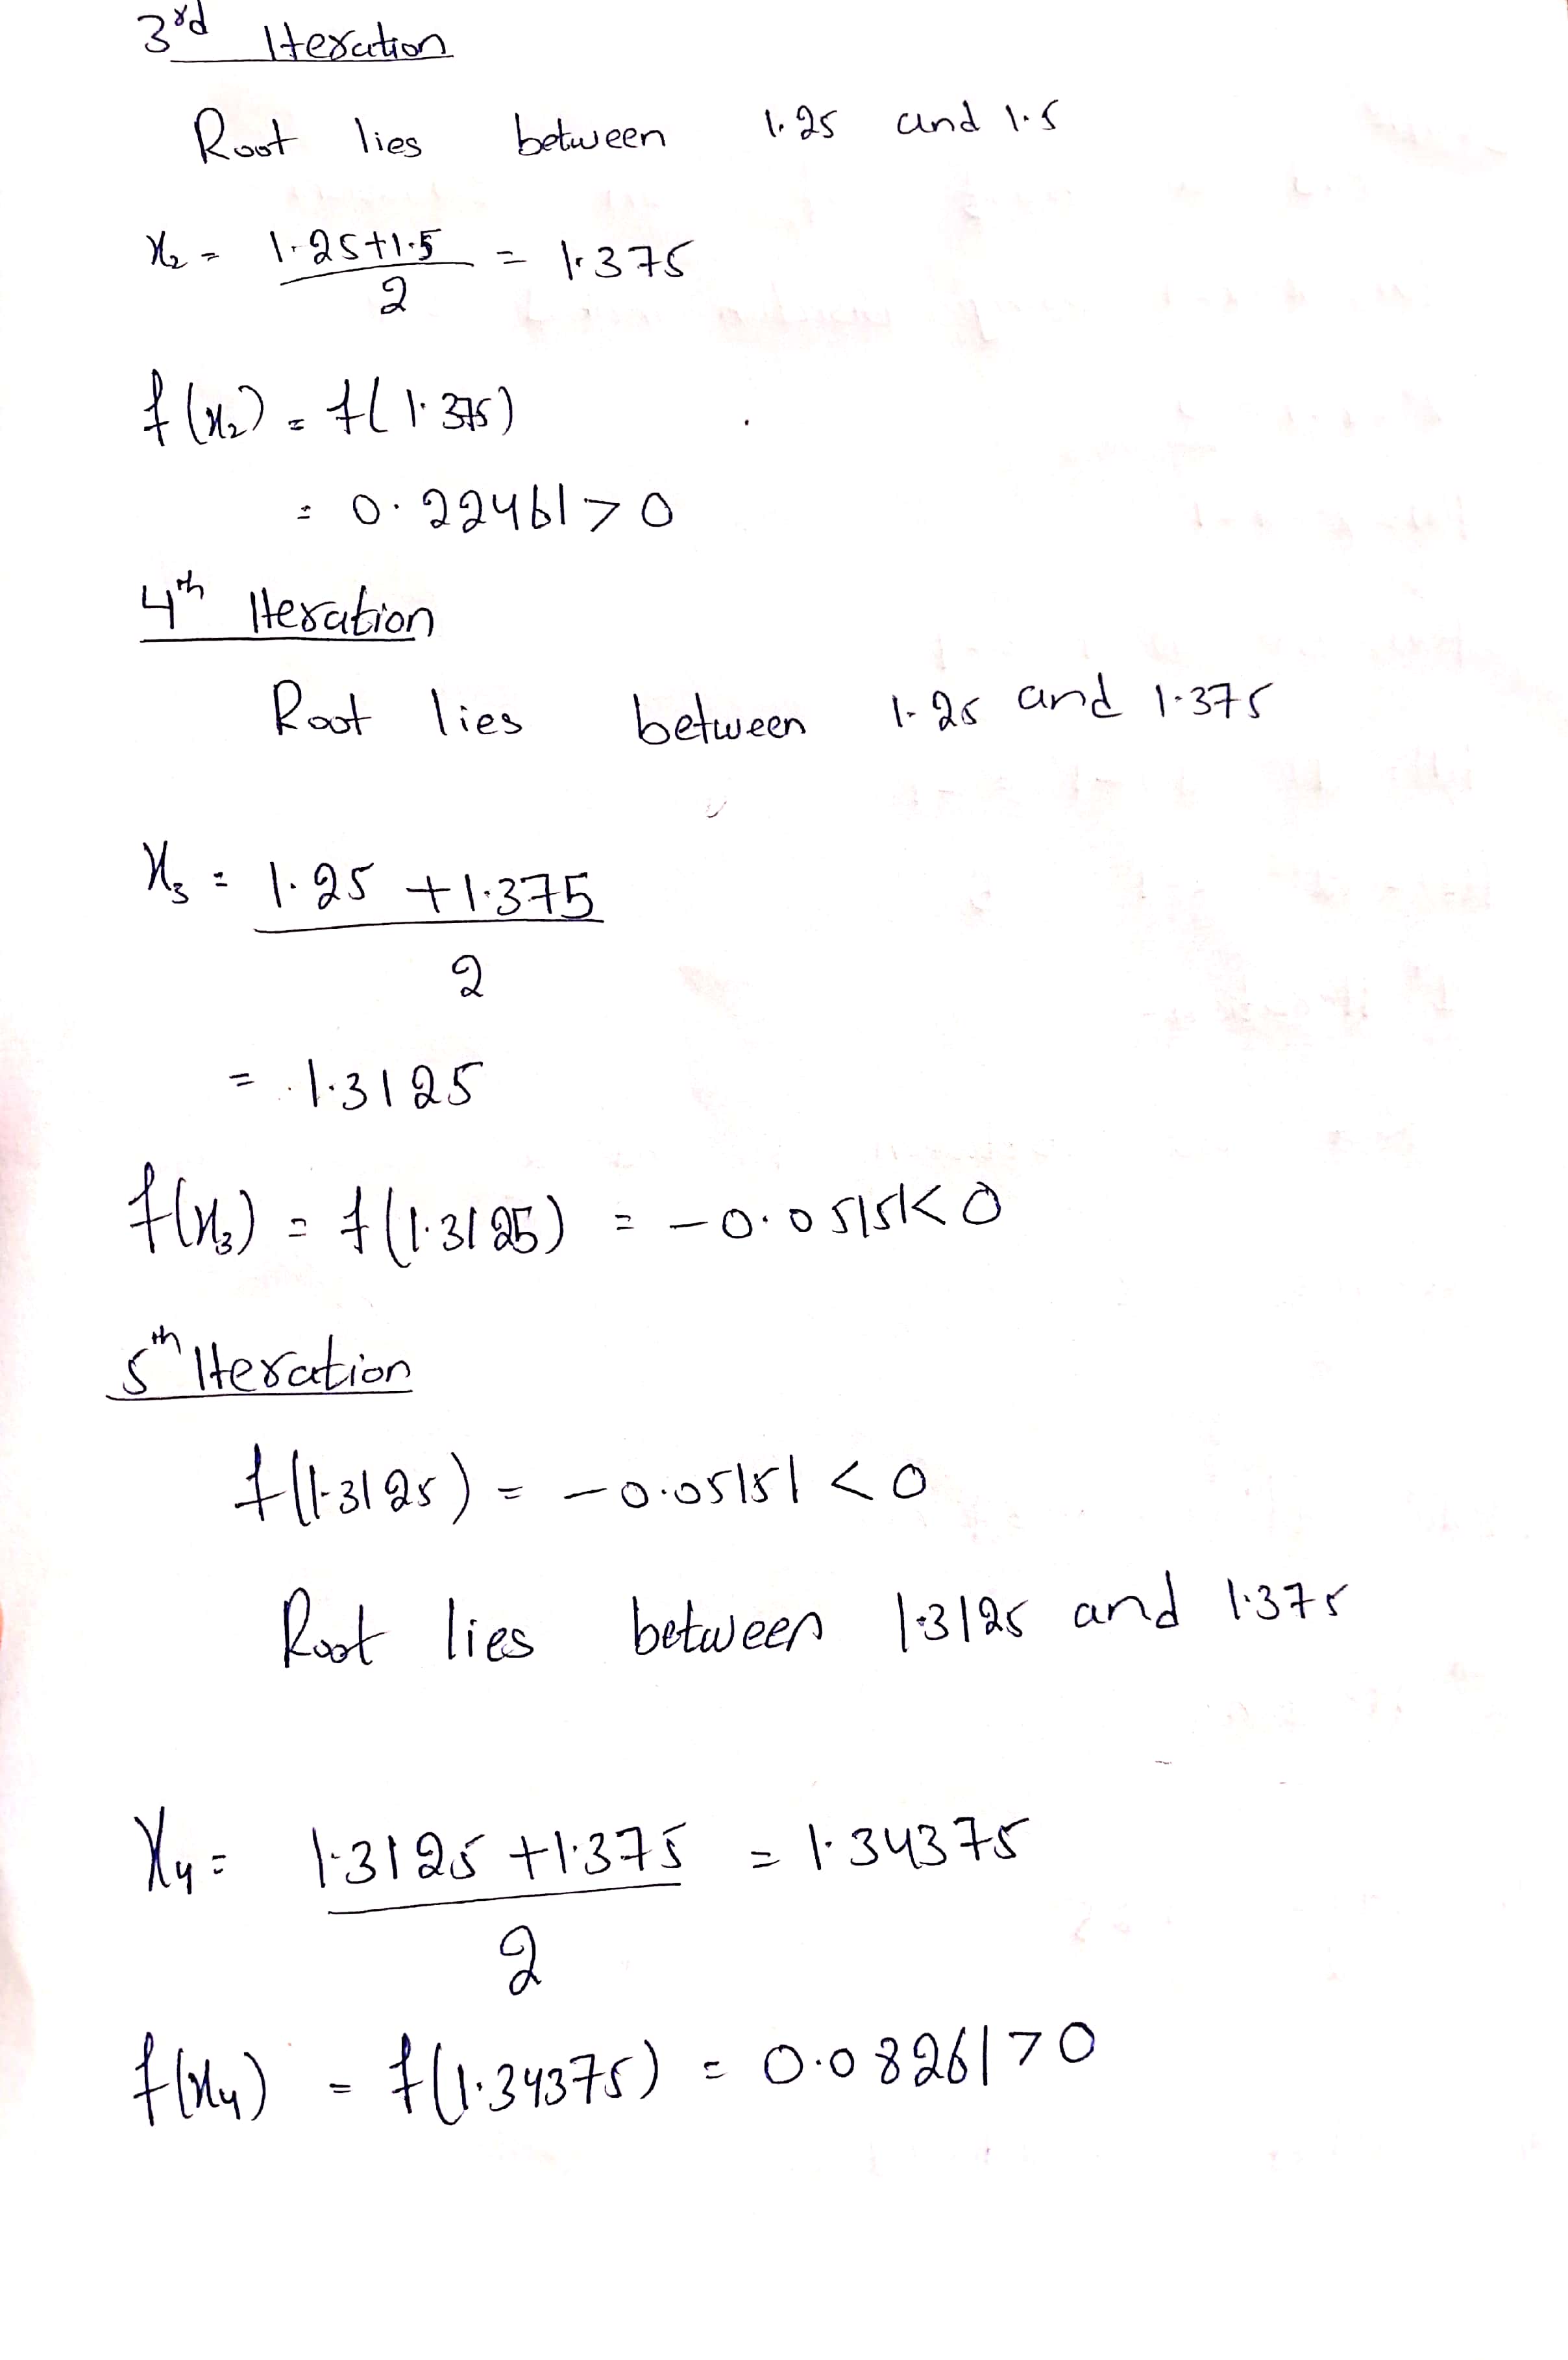 3rd Iteration
Root lies between 1.25 and 1.5
x₂ = (1.25+1.5)/2 = 1.375
f(x₂) = f(1.375)
= 0.22461>0
4th Iteration
Root lies between 1.25 and 1.375
x₃ = (1.25+1.375)/2
= 1.3125
f(x₃) = f(1.3125) = -0.05151<0
5th Iteration
f(1.3125) = -0.05151<0
Root lies between 1.3125 and 1.375
x₄ = (1.3125+1.375)/2 = 1.34375
f(x₄) = f(1.34375) = 0.08261>0